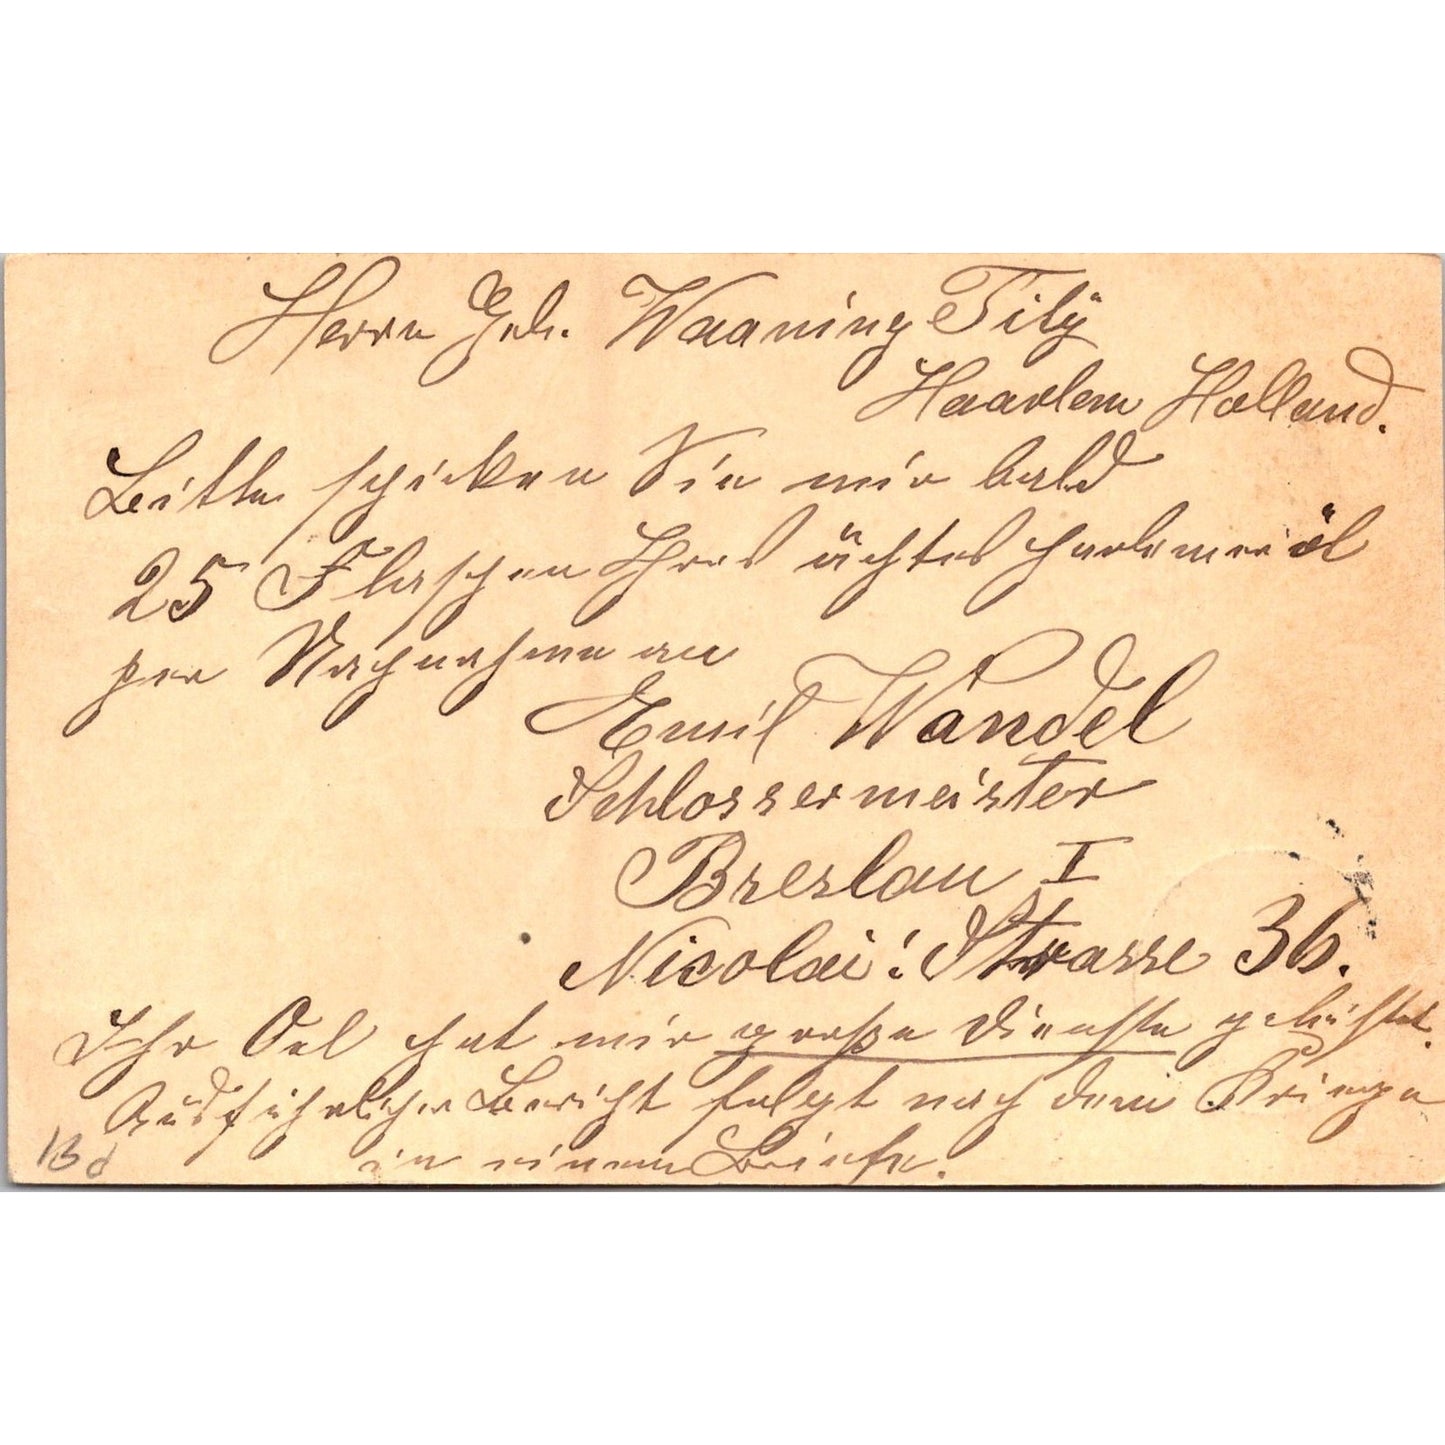 Herrn Geb. Waaning Tilÿ
Haarlem Holland.
Bitte schicken Sie mir bald
25 Flaschen Ihres ächtes harlemeröl
per Nachnahme an
Emil Wandel
Schlossermeister
Breslau I
Nicolai: Strasse 36.
Ihr Oel hat mir große Dienste geleistet.
Ausführlicher Bericht folgt nach dem Kriege
in einem Briefe.